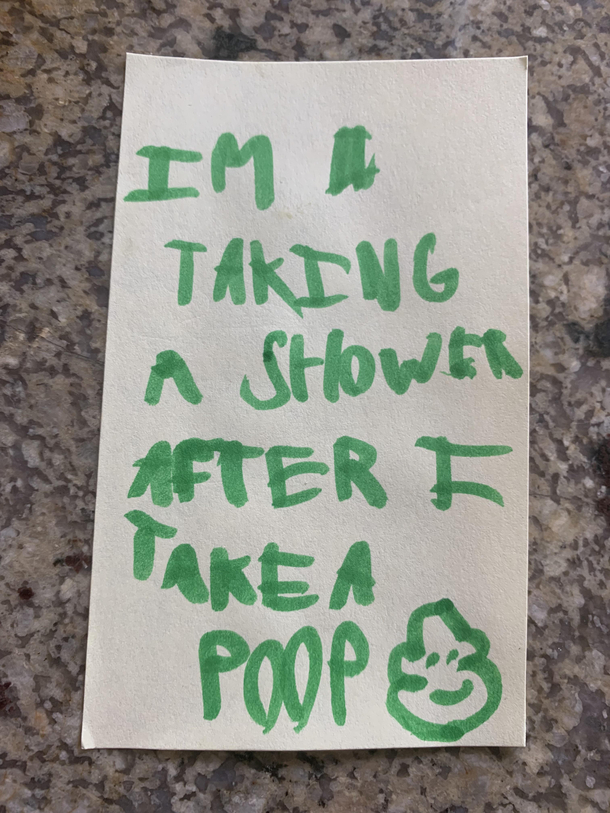 IM A
TAKING
A SHOWER
AFTER I
TAKE A
POOP